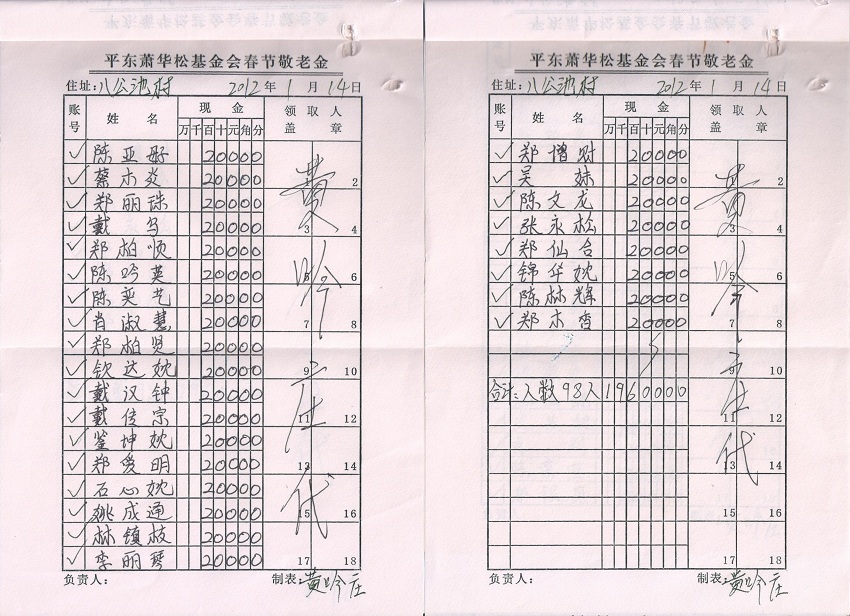 平东萧华松基金会春节敬老金
住址：八公池村 2012年1月14日
账号 姓名 现金 领取人盖章
万千百十元角分
✓ 陈亚好 20000
✓ 蔡木炎 20000 2
✓ 郑丽珠 20000
✓ 戴乌 20000 3 4
✓ 郑柏顺 20000
✓ 陈吟英 20000 5 6
✓ 陈奕艺 20000
✓ 肖淑慧 20000 7 8
✓ 郑柏贤 20000
✓ 钦达婉 20000 9 10
✓ 戴汉钟 20000
✓ 戴传宗 20000 11 12
✓ 鉴坤婉 20000
✓ 郑爱明 20000 13 14
✓ 石心婉 20000
✓ 姚成通 20000 15 16
✓ 林镇枝 20000
✓ 李丽琴 20000 17 18
黄吟庄代
负责人： 制表：黄吟庄
平东萧华松基金会春节敬老金
住址：八公池村 2012年1月14日
账号 姓名 现金 领取人盖章
万千百十元角分
✓ 郑增财 20000
✓ 吴妹 20000 2
✓ 陈文龙 20000
✓ 张永松 20000 3 4
✓ 郑仙合 20000
✓ 锦华婉 20000 5 6
✓ 陈林辉 20000
✓ 郑木香 20000 7 8
9 10
合计：人数98人 1960000
11 12
13 14
15 16
17 18
黄吟庄代
负责人： 制表：黄吟庄